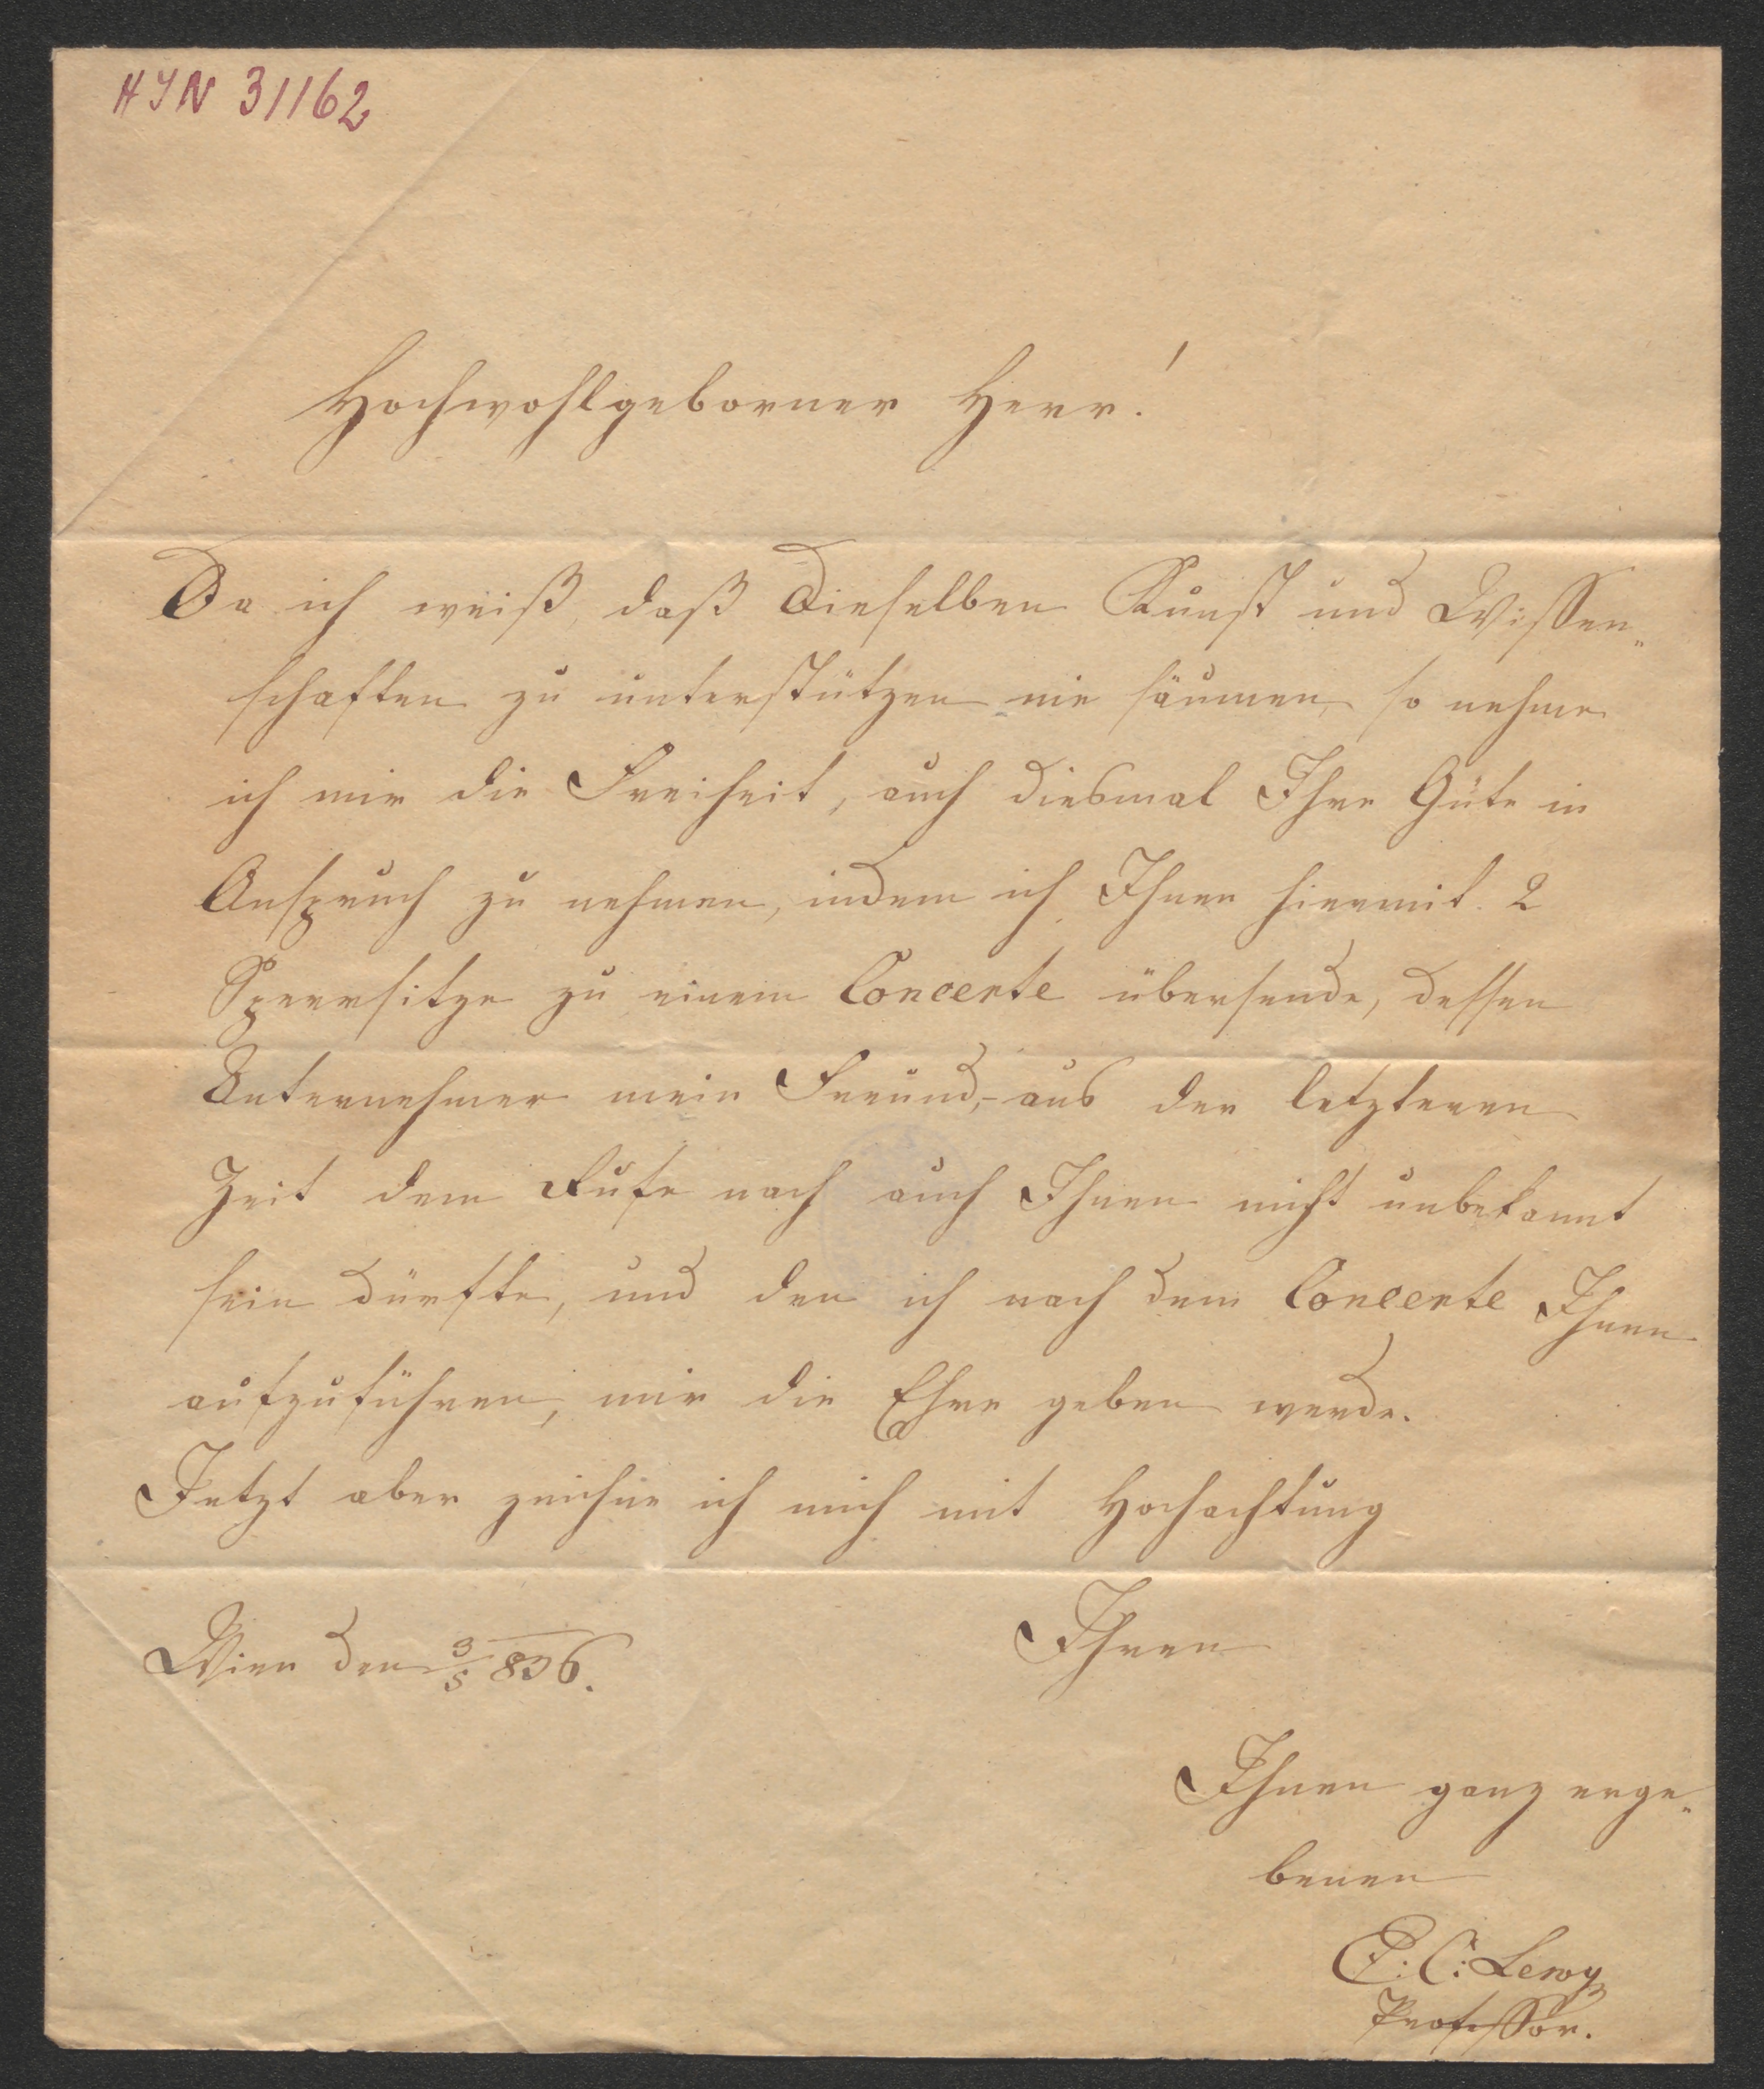 HJN 31162
Hochwohlgeborner Herr!
Da ich weiß, daß Dieselben Kunst und Wissen„
schaften zu unterstützen nie säumen, so nehme
ich mir die Freiheit, auch diesmal Ihre Güte in
Anspruch zu nehmen, indem ich Ihnen hiermit 2
Sperrsitze zu einem Concerte übersende, dessen
Unternehmer mein Freund, aus der letzteren
Zeit dem Rufe nach auch Ihnen nicht unbekannt
sein dürfte, und den ich nach dem Concerte Ihnen
aufzuführen, mir die Ehre geben werde.
Jetzt aber zeichne ich mich mit Hochachtung
Wien den 3/5 836.
Ihren
Ihnen ganz erge„
benen
E: C: Lewy
Professor.